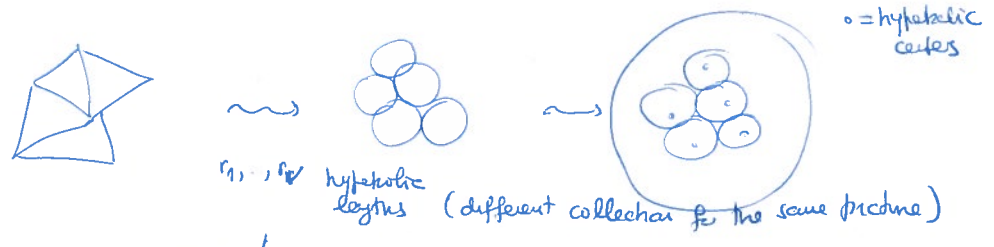 o = hyperbolic
centers
r₁, .., r_V hyperbolic
lengths (different collection for the same picture)